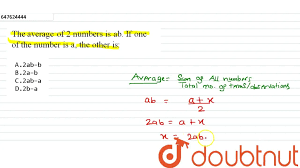 647624444
The average of 2 numbers is ab. If one
of the number is a, the other is:
A.2ab-b
B.2a-b
C.2ab-a
D.2b-a
Average = Sum of All numbers
Total no. of terms/observations
ab = a + x
2
2ab = a + x
x = 2ab
doubtnut